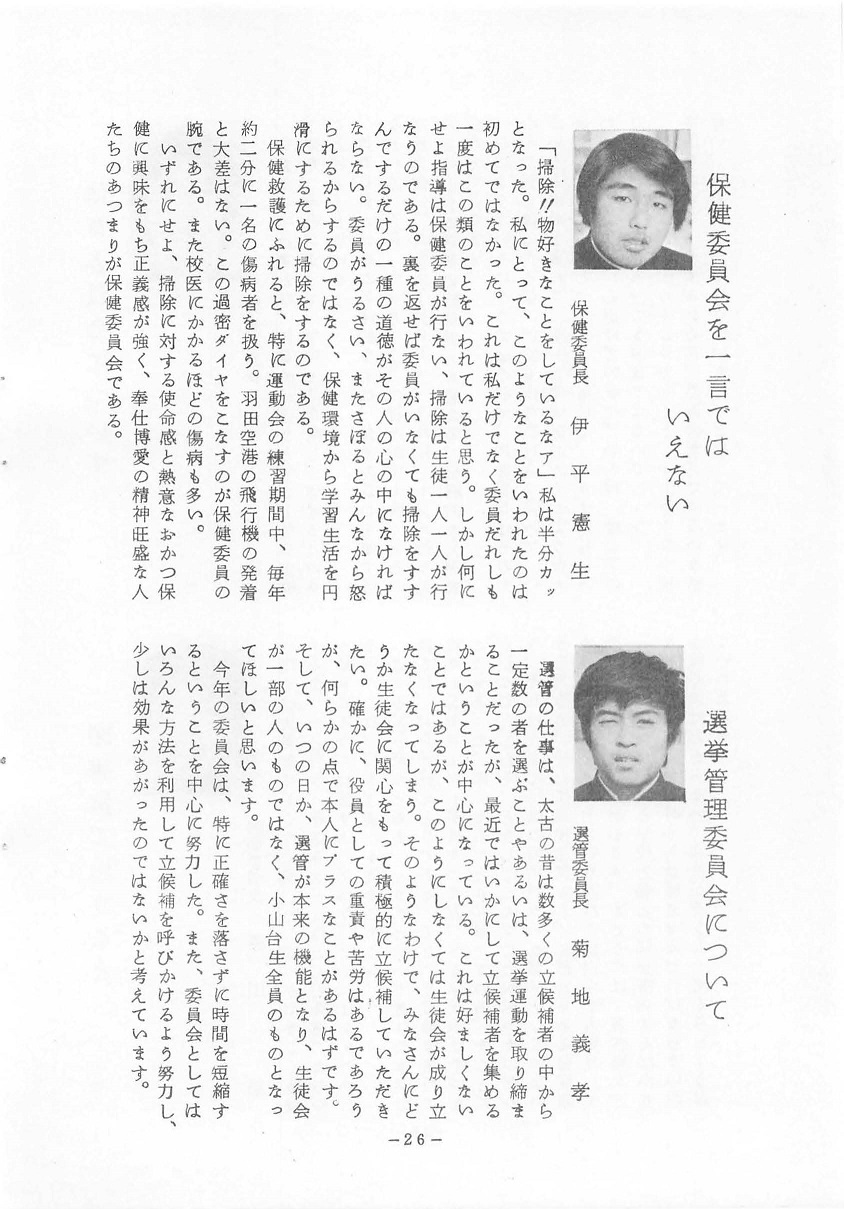 保健委員会を一言では
いえない
保健委員長　伊平憲生
「掃除!!物好きなことをしているなァ」私は半分カッ
となった。私にとって、このようなことをいわれたのは
初めてではなかった。これは私だけでなく委員だれしも
一度はこの類のことをいわれていると思う。しかし何に
せよ指導は保健委員が行ない、掃除は生徒一人一人が行
なうのである。裏を返せば委員がいなくても掃除をすす
んでするだけの一種の道徳がその人の心の中になければ
ならない。委員がうるさい、またさぼるとみんなから怒
られるからするのではなく、保健環境から学習生活を円
滑にするために掃除をするのである。
保健救護にふれると、特に運動会の練習期間中、毎年
約二分に一名の傷病者を扱う。羽田空港の飛行機の発着
と大差はない。この過密ダイヤをこなすのが保健委員の
腕である。また校医にかかるほどの傷病も多い。
いずれにせよ、掃除に対する使命感と熱意なおかつ保
健に興味をもち正義感が強く、奉仕博愛の精神旺盛な人
たちのあつまりが保健委員会である。
選挙管理委員会について
選管委員長　菊地義孝
選管の仕事は、太古の昔は数多くの立候補者の中から
一定数の者を選ぶことやあるいは、選挙運動を取り締ま
ることだったが、最近ではいかにして立候補者を集める
かということが中心になっている。これは好ましくない
ことではあるが、このようにしなくては生徒会が成り立
たなくなってしまう。そのようなわけで、みなさんにど
うか生徒会に関心をもって積極的に立候補していただき
たい。確かに、役員としての重責や苦労はあるであろう
が、何らかの点で本人にプラスなことがあるはずです。
そして、いつの日か、選管が本来の機能となり、生徒会
が一部の人のものではなく、小山台生全員のものとなっ
てほしいと思います。
今年の委員会は、特に正確さを落さずに時間を短縮す
るということを中心に努力した。また、委員会としては
いろんな方法を利用して立候補を呼びかけるよう努力し、
少しは効果があがったのではないかと考えています。
－26－